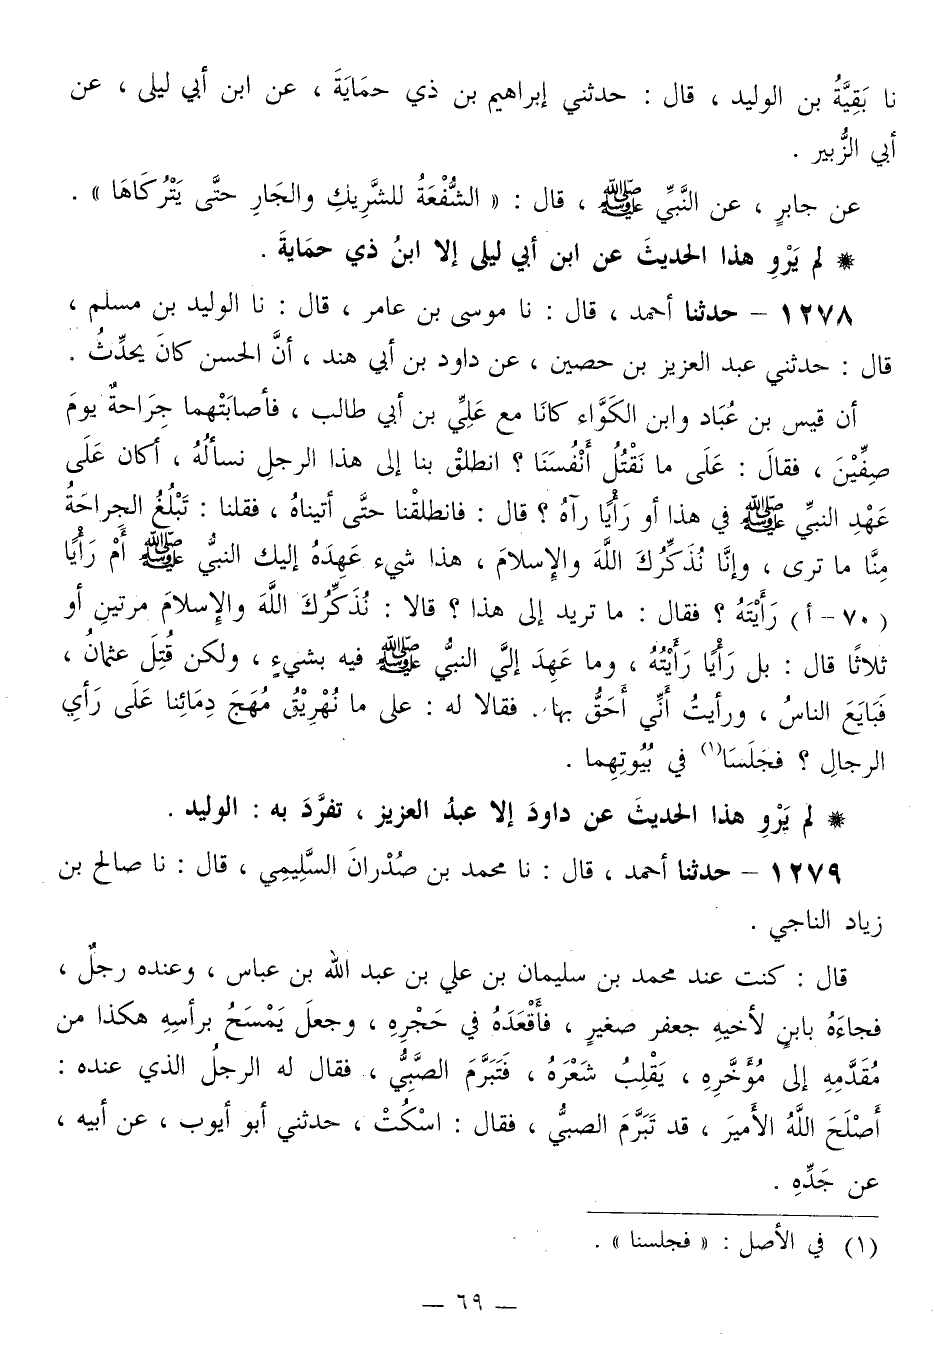 نا بَقِيَّةُ بن الوليد ، قال : حدثني إبراهيم بن ذي حمَايَةَ ، عن ابن أبي ليلى ، عن
أبي الزُّبير .
عن جابرٍ ، عن النَّبيِّ ﷺ ، قال : « الشُّفْعَةُ للشَّريكِ والجَارِ حتَّى يَتْرُكَاهَا » .
* لم يَرْوِ هذا الحديثَ عن ابن أبي ليلى إلا ابنُ ذي حمايةَ .
١٢٧٨ – حدثنا أحمد ، قال : نا موسى بن عامر ، قال : نا الوليد بن مسلم ،
قال : حدثني عبد العزيز بن حصين ، عن داود بن أبي هند ، أنَّ الحسن كانَ يحدِّثُ .
أن قيس بن عُبَاد وابن الكَوَّاء كانَا مع عَلِيِّ بن أبي طالب ، فأصابَتْهما جِرَاحةٌ يومَ
صِفِّيْنَ ، فقالَ : عَلَى ما نَقْتُلُ أَنْفُسَنَا ؟ انطلقْ بنا إلى هذا الرجلِ نسألُهُ ، أكان عَلَى
عَهْدِ النبيِّ ﷺ في هذا أو رَأْيًا رآهُ ؟ قال : فانطلقْنا حتَّى أتيناهُ ، فقلنا : تَبْلُغُ الجِراحَةُ
مِنَّا ما ترى ، وإنَّا نُذَكِّرُكَ اللَّهَ والإِسلامَ ، هذا شيء عَهِدَهُ إليك النبيُّ ﷺ أَمْ رَأْيًا
(٧٠ – أ) رَأَيْتَهُ ؟ فقال : ما تريد إلى هذا ؟ قالا : نُذَكِّرُكَ اللَّهَ والإِسلامَ مرتينِ أو
ثلاثًا قال : بل رَأْيًا رَأَيْتُهُ ، وما عَهِدَ إليَّ النبيُّ ﷺ فيه بشيءٍ ، ولكن قُتِلَ عثمانُ ،
فَبَايَعَ الناسُ ، ورأيتُ أنِّي أَحَقُّ بها . فقالا له : على ما نُهْرِيْقُ مُهَجَ دِمَائِنا عَلَى رَأيِ
الرجالِ ؟ فجَلَسَا(١) في بُيُوتِهِما .
* لم يَرْوِ هذا الحديثَ عن داودَ إلا عبدُ العزيز ، تفرَّدَ به : الوليد .
١٢٧٩ – حدثنا أحمد ، قال : نا محمد بن صُدْرانَ السَّلِيمِي ، قال : نا صالح بن
زياد الناجي .
قال : كنت عند محمد بن سليمان بن علي بن عبد الله بن عباس ، وعنده رجلٌ ،
فجاءَهُ بابنٍ لأخيهِ جعفر صغيرٍ ، فأَقْعَدَهُ في حَجْرِهِ ، وجعلَ يَمْسَحُ برأسِهِ هكذا من
مُقَدَّمِهِ إلى مُؤَخَّرِهِ ، يَقْلِبُ شَعْرَهُ ، فَتَبَرَّمَ الصَّبِيُّ ، فقال له الرجلُ الذي عنده :
أَصْلَحَ اللَّهُ الأميرَ ، قد تَبَرَّمَ الصبيُّ ، فقال : اسْكُتْ ، حدثني أبو أيوب ، عن أبيه ،
عن جَدِّهِ .
(١) في الأصل : « فجلسنا » .
— ٦٩ —